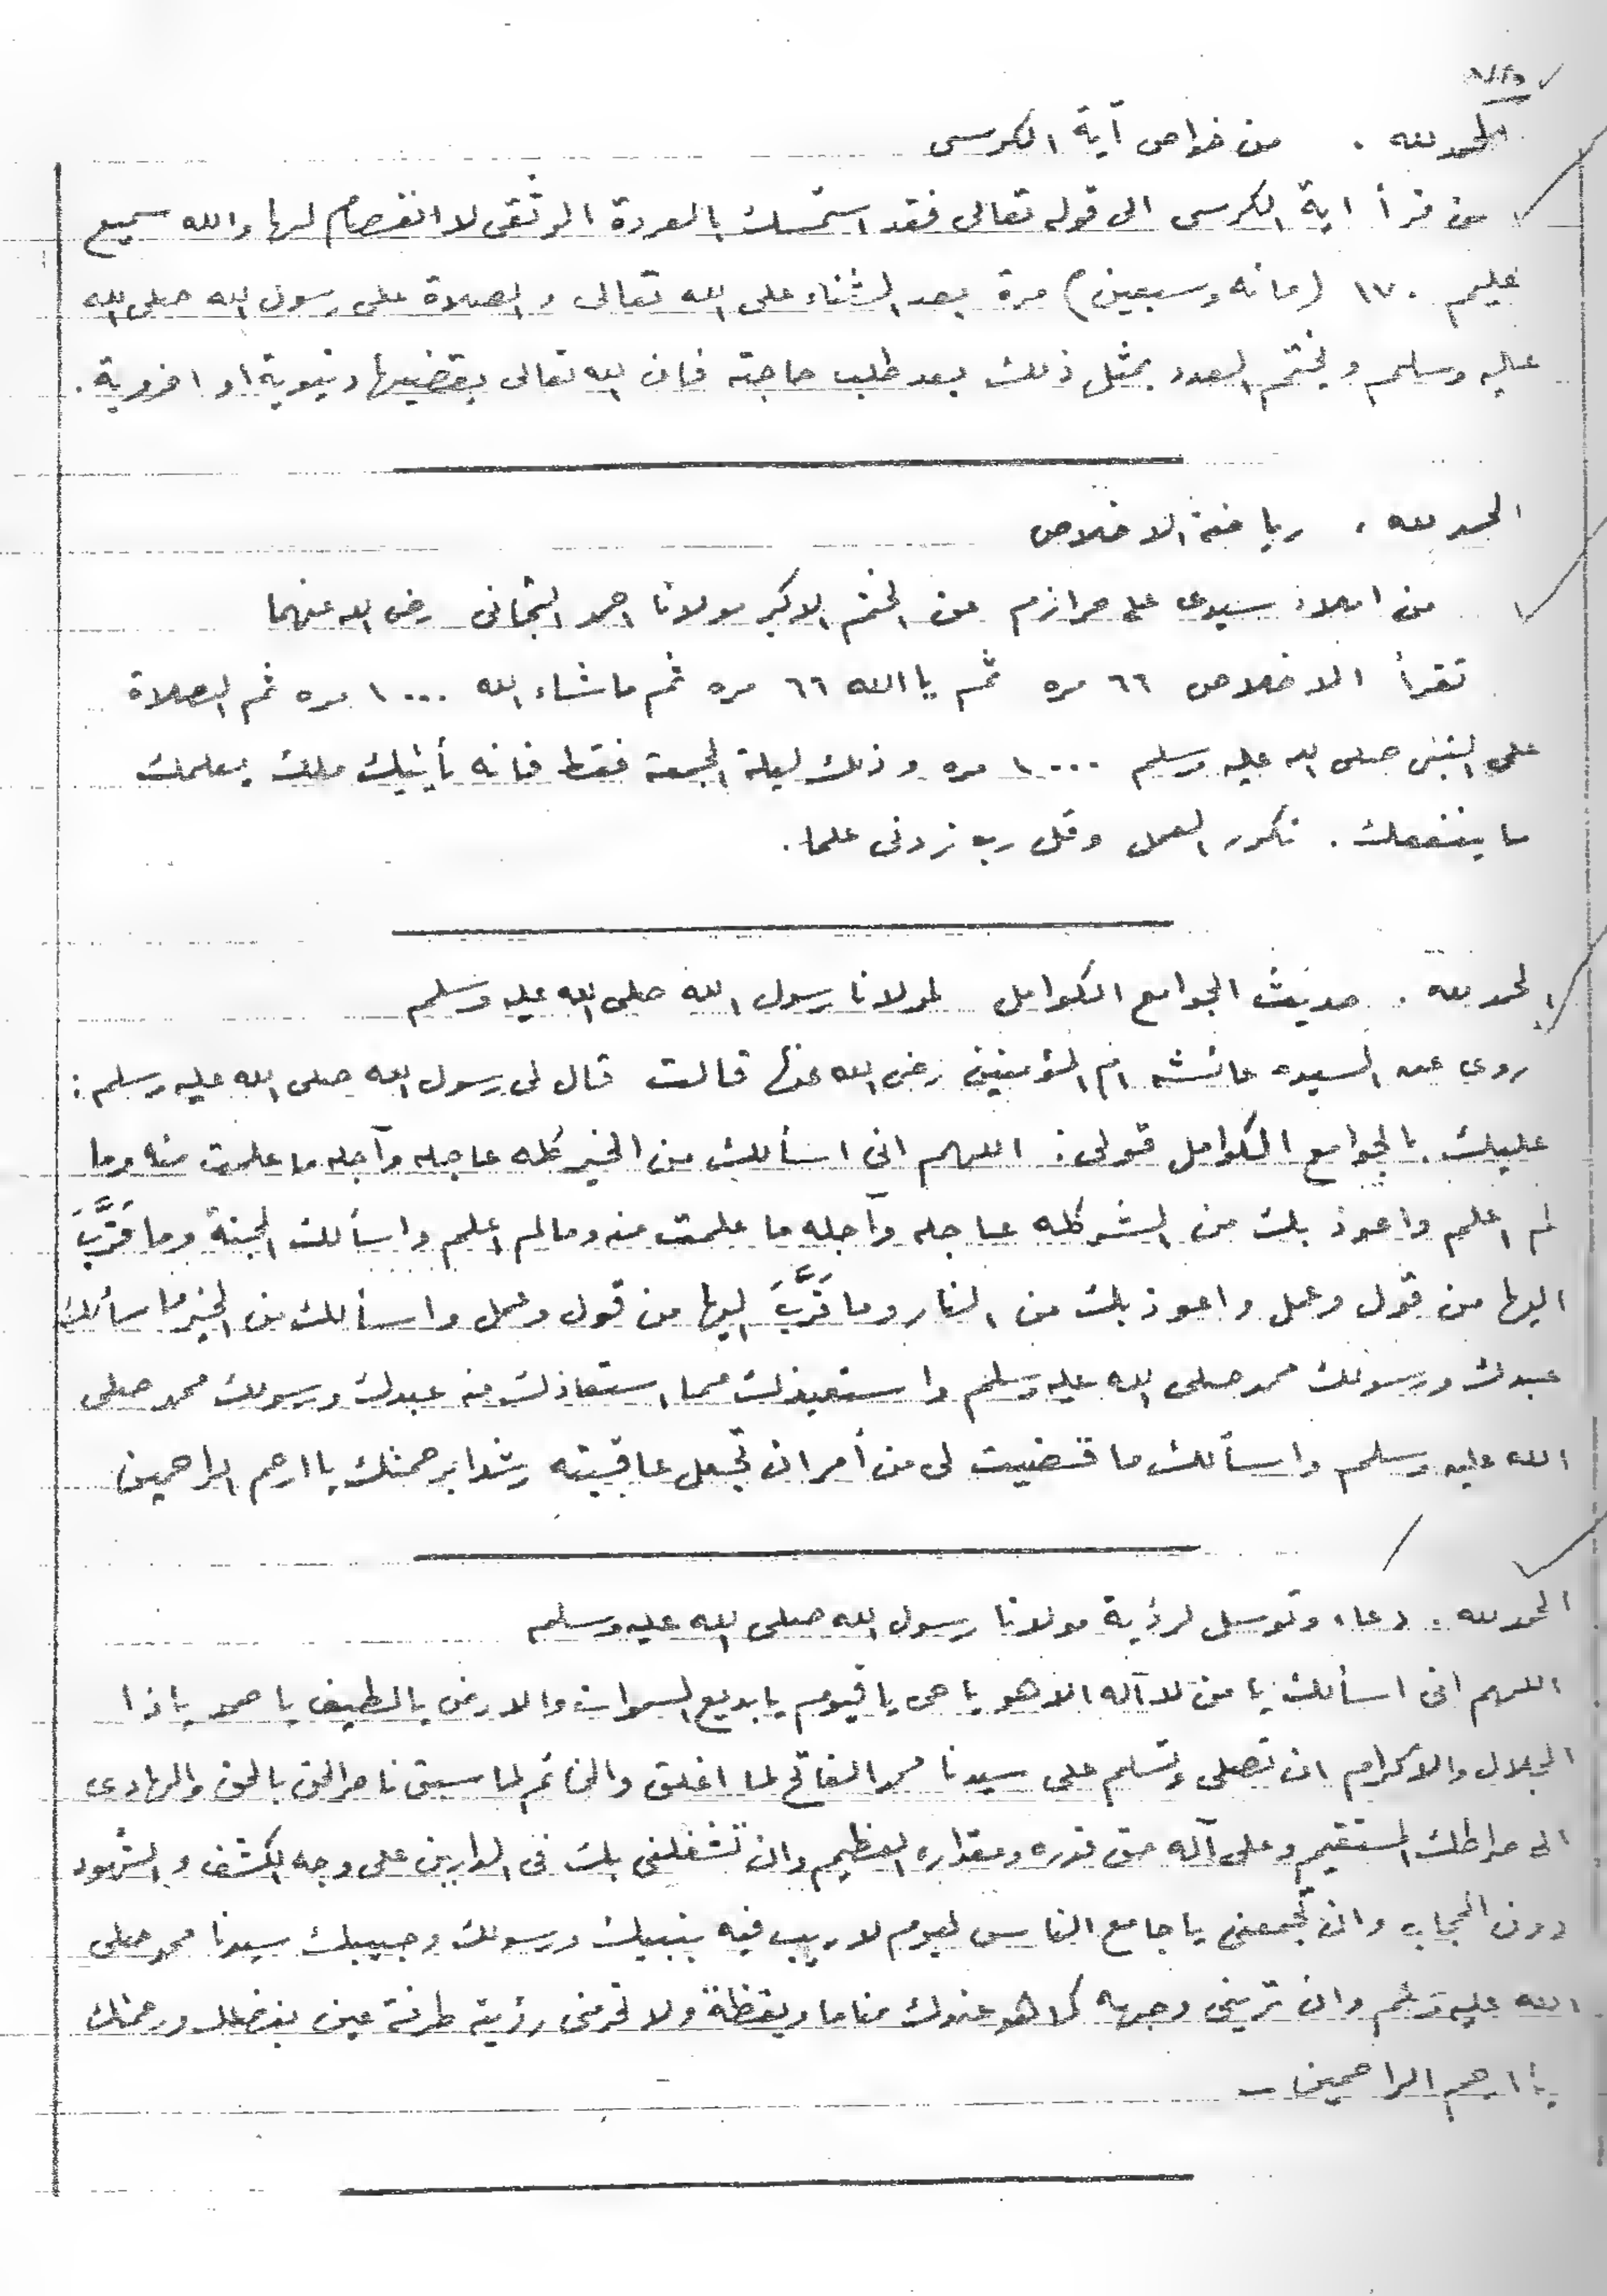 الحمد لله . من خواص آية الكرسى
من قرأ اية الكرسى الى قوله تعالى فقد استمسك بالعروة الوثقى لا انفصام لها والله سميع
عليم ١٧٠ (مائه وسبعين) مرة بعد الثناء على الله تعالى والصلاة على رسول الله صلى الله
عليه وسلم ويختم العدد بمثل ذلك بعد طلب حاجته فان الله تعالى يقضيها دنيوية او اخروية .
الحمد لله . رياضة الاخلاص
من املاء سيدى على حرازم عن الختم الاكبر مولانا احمد التجانى رضى الله عنهما
تقرأ الاخلاص ٦٦ مره ثم يا الله ٦٦ مره ثم ماشاء الله ١٠٠٠ مره ثم الصلاة
على النبى صلى الله عليه وسلم ١٠٠٠ مره وذلك ليلة الجمعة فقط فانه يأتيك ملك يعلمك
ما ينفعك . تكرر العمل وقل رب زدنى علما .
الحمد لله . حديث الجوامع الكوامل لمولانا رسول الله صلى الله عليه وسلم
روى عن السيده عائشه ام المؤمنين رضى الله عنها قالت قال لى رسول الله صلى الله عليه وسلم :
عليك بالجوامع الكوامل قولى : اللهم انى اسألك من الخير كله عاجله وآجله ما علمت منه وما
لم اعلم واعوذ بك من الشر كله عاجله وآجله ما علمت منه وما لم اعلم واسألك الجنة وما قَرَّبَ
اليها من قول وعمل واعوذ بك من النار وما قَرَّبَ اليها من قول وعمل واسألك من الخير ما سألك
عبدك ورسولك محمد صلى الله عليه وسلم واستعيذك مما استعاذك منه عبدك ورسولك محمد صلى
الله عليه وسلم واسألك ما قضيت لى من أمر ان تجعل عاقبته رشدا برحمتك يا ارحم الراحمين
الحمد لله . دعاء وتوسل لرؤية مولانا رسول الله صلى الله عليه وسلم
اللهم انى اسألك يا من لا آله الا هو يا حى يا قيوم يا بديع السموات والارض يا لطيف يا صمد يا ذا
الجلال والاكرام ان تصلى وتسلم على سيدنا محمد الفاتح لما اغلق والخاتم لما سبق ناصر الحق بالحق والهادى
الى صراطك المستقيم وعلى آله حق قدره ومقداره العظيم وان تشغلنى بك فى الدارين على وجه الكشف والشهود
دون الحجاب وان تجمعنى يا جامع الناس ليوم لا ريب فيه بنبيك ورسولك وحبيبك سيدنا محمد صلى
الله عليه وسلم وان ترينى وجهه كما هو عندك مناما ويقظة ولا تحرمنى رؤيته طرفة عين بفضلك ورحمتك
يا ارحم الراحمين